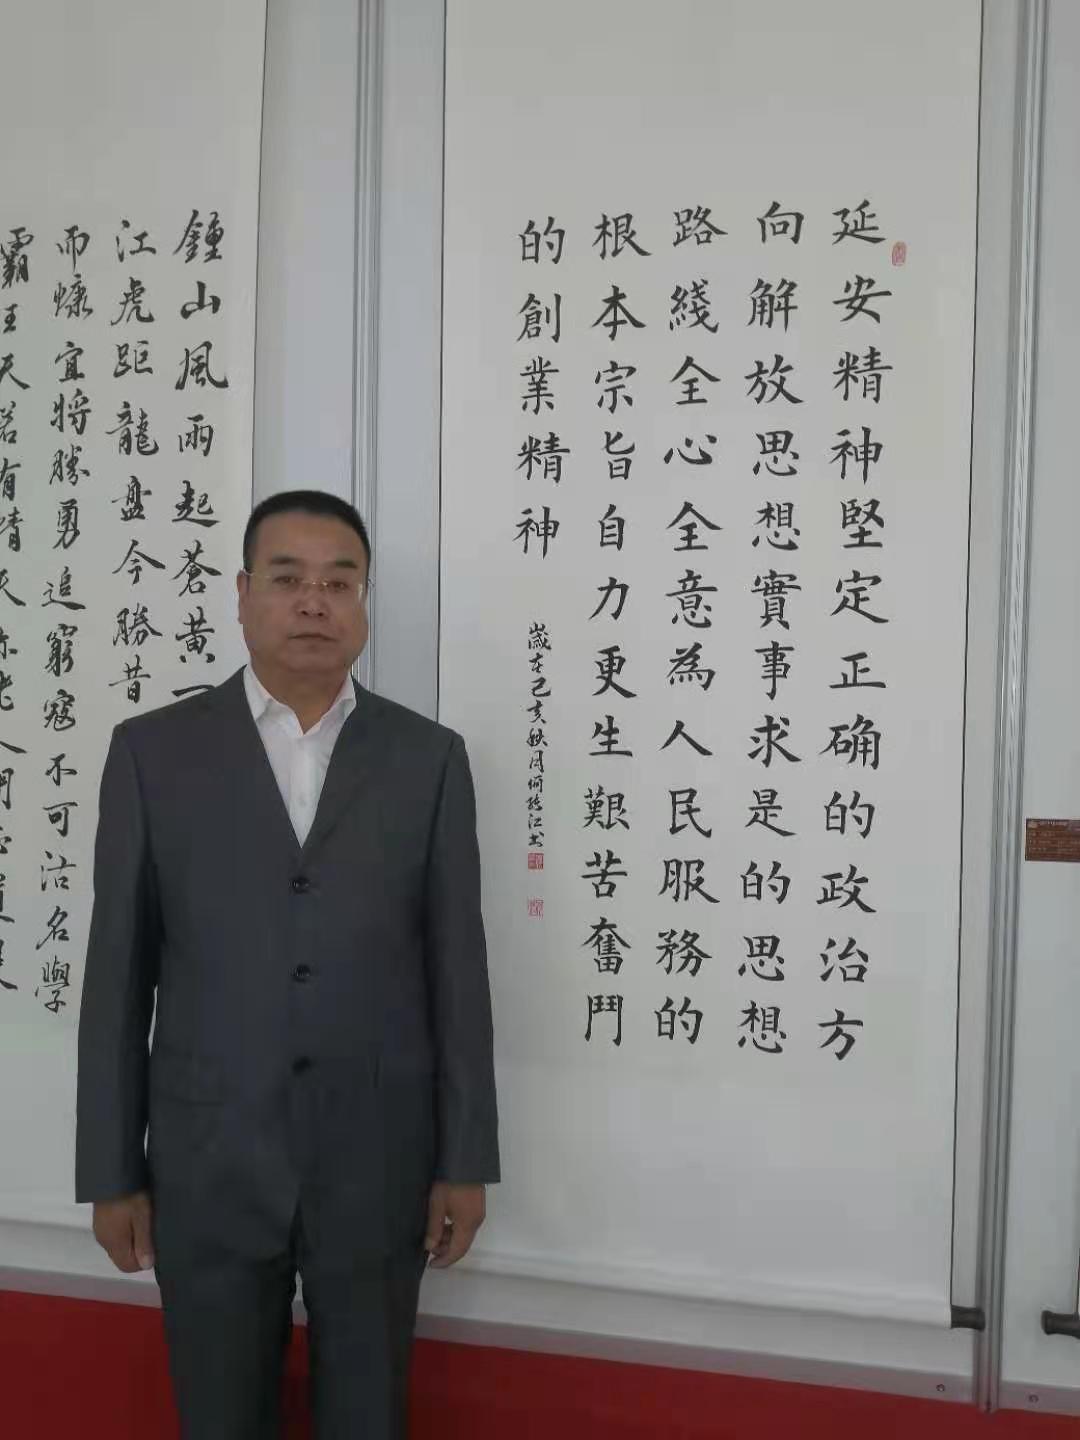 延安精神堅定正确的政治方
向解放思想實事求是的思想
路綫全心全意為人民服務的
根本宗旨自力更生艱苦奮鬥
的創業精神
歲在己亥秋月何
江书
鍾山風雨起蒼黃
江虎距龍盘今勝昔
而慷宜将勝勇追窮寇不可沽名學
霸王天若有情天亦老人間正道是